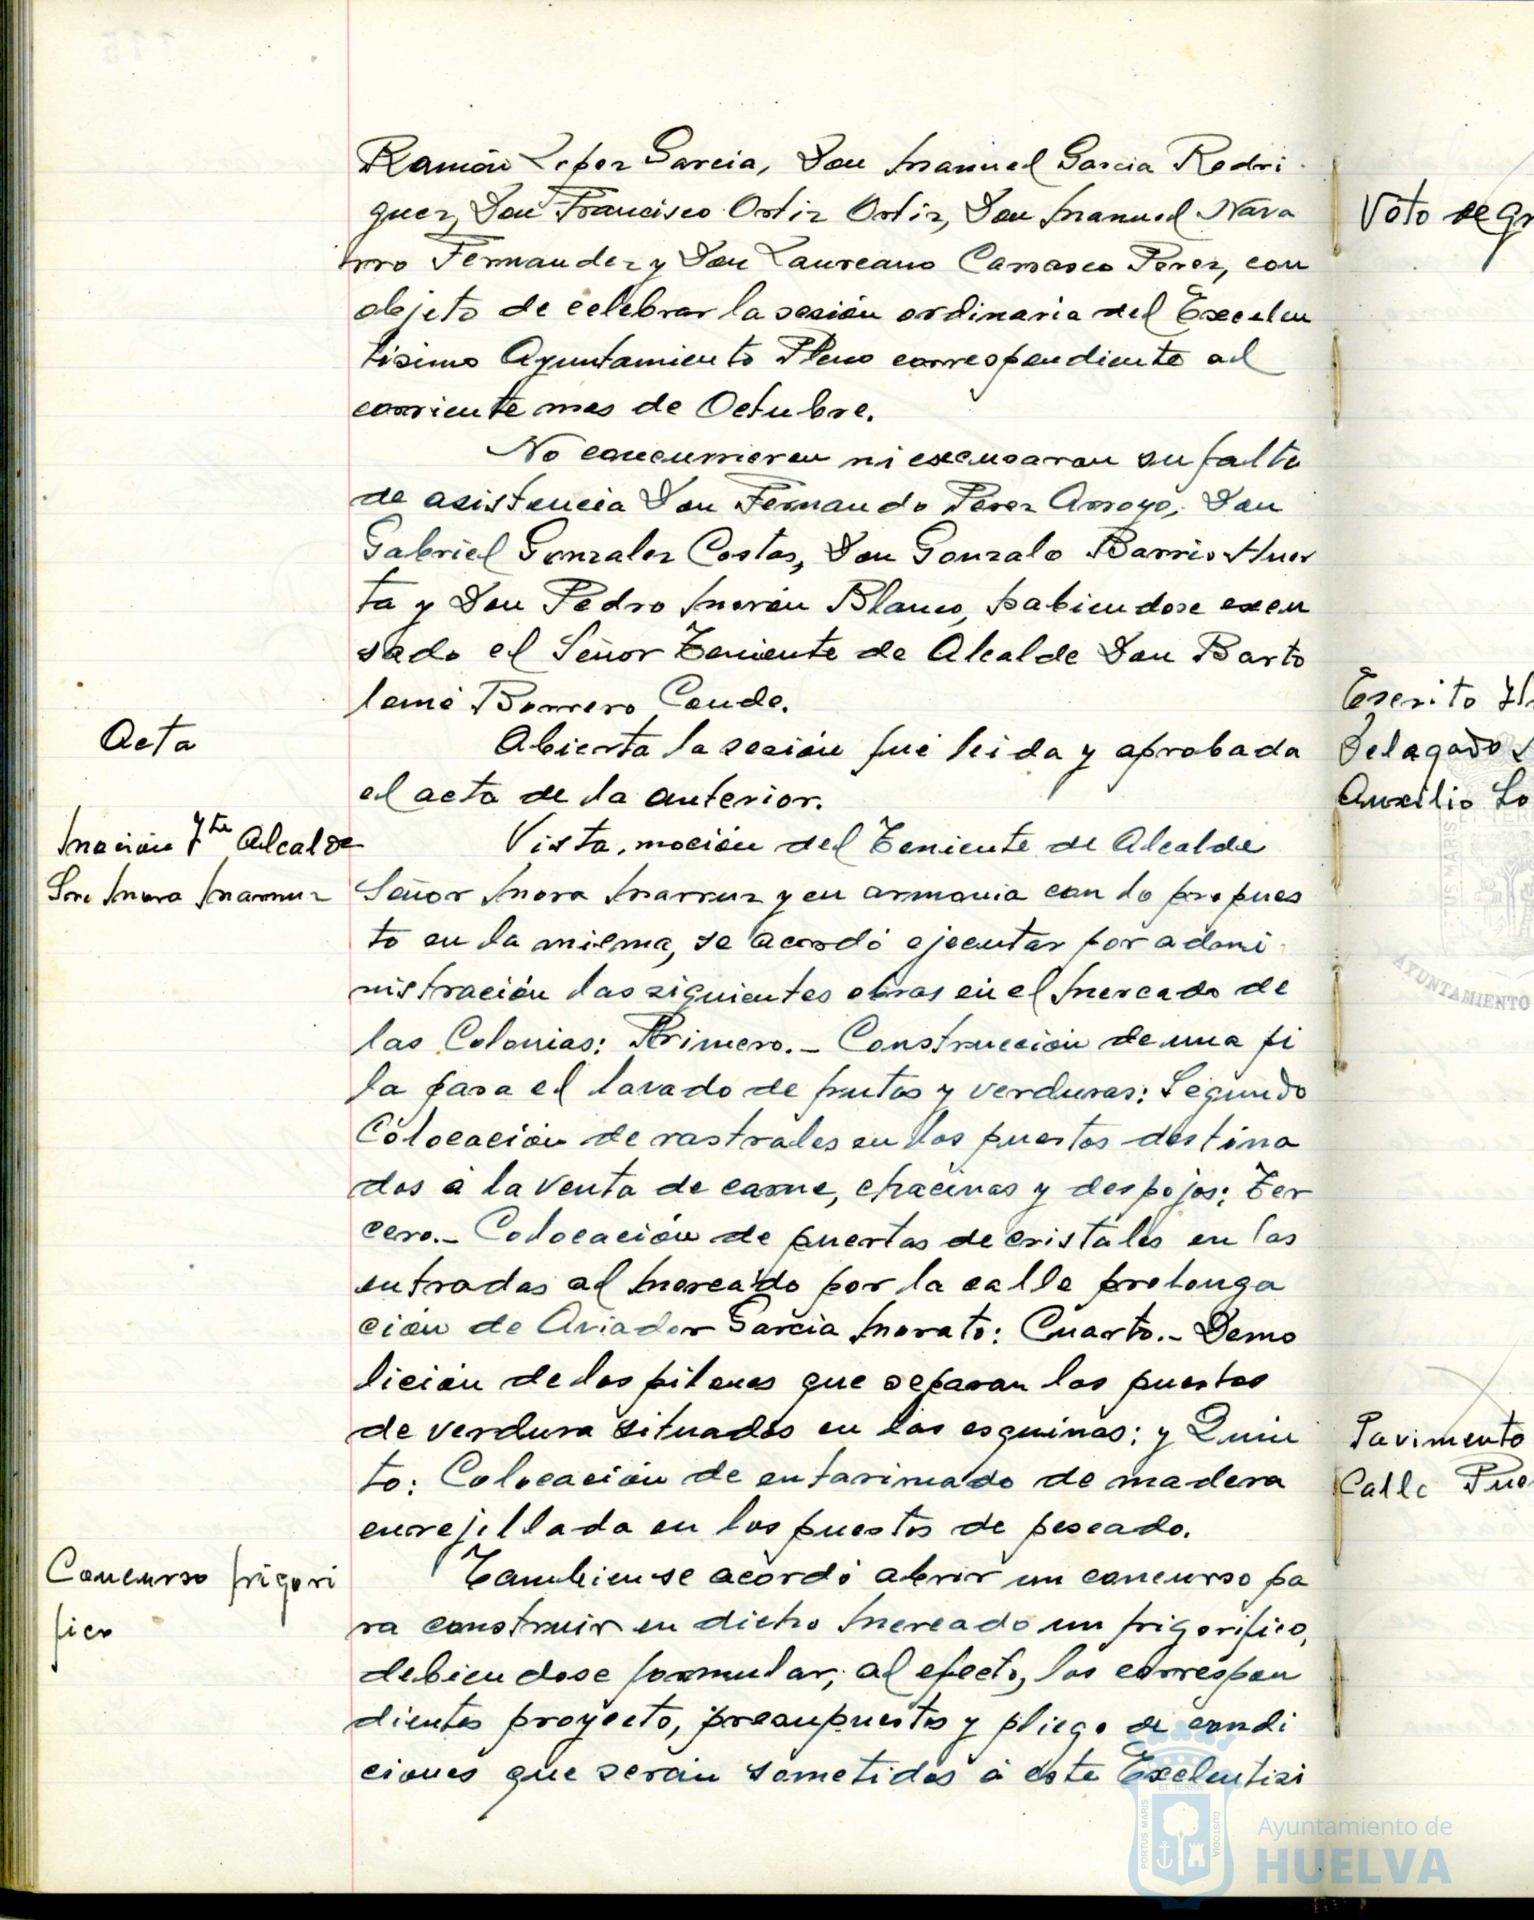 Ramón Lopez Garcia, Don Manuel Garcia Rodri
guez, Don Francisco Ortiz Ortiz, Don Manuel Nava
rro Fernandez y Don Laureano Carrasco Perez, con
objeto de celebrar la sesión ordinaria del Excelen
tisimo Ayuntamiento Pleno correspondiente al
corriente mes de Octubre.
No concurrieron ni excusaron su falta
de asistencia Don Fernando Perez Arroyo, Don
Gabriel Gonzalez Costas, Don Gonzalo Barrio Huer
ta y Don Pedro Morón Blanco, habiendose excu
sado el Señor Teniente de Alcalde Don Barto
lomé Borrero Conde.
Acta
Abierta la sesión fué leida y aprobada
el acta de la anterior.
Moción Tte Alcalde
Sr. Mora Marruz
Vista, moción del Teniente de Alcalde
Señor Mora Marruz y en armonia con lo propues
to en la misma, se acordó ejecutar por admi
nistración las siguientes obras en el Mercado de
las Colonias: Primero.- Construcción de una pi
la para el lavado de frutas y verduras: Segundo
Colocación de rastrales en los puestos destina
dos á la venta de carne, chacinas y despojos: Ter
cero.- Colocación de puertas de cristales en las
entradas al Mercado por la calle prolonga
ción de Aviador Garcia Morato: Cuarto.- Demo
lición de los pilares que separan los puestos
de verdura situados en las esquinas: y Quin
to: Colocación de entarimado de madera
enrejillada en los puestos de pescado.
Concurso frigori
fico
Tambien se acordó abrir un concurso pa
ra construir en dicho Mercado un frigorifico,
debiendose formular, al efecto, los correspon
dientes proyecto, presupuesto y pliego de condi
ciones que serán sometidos á este Exelentisi
Voto de gr
Escrito
Delegado
Auxilio So
Pavimento
Calle Pue
AYUNTAMIENTO
PORTUS MARIS
ET TERRAE
CUSTODIA
Ayuntamiento de
HUELVA